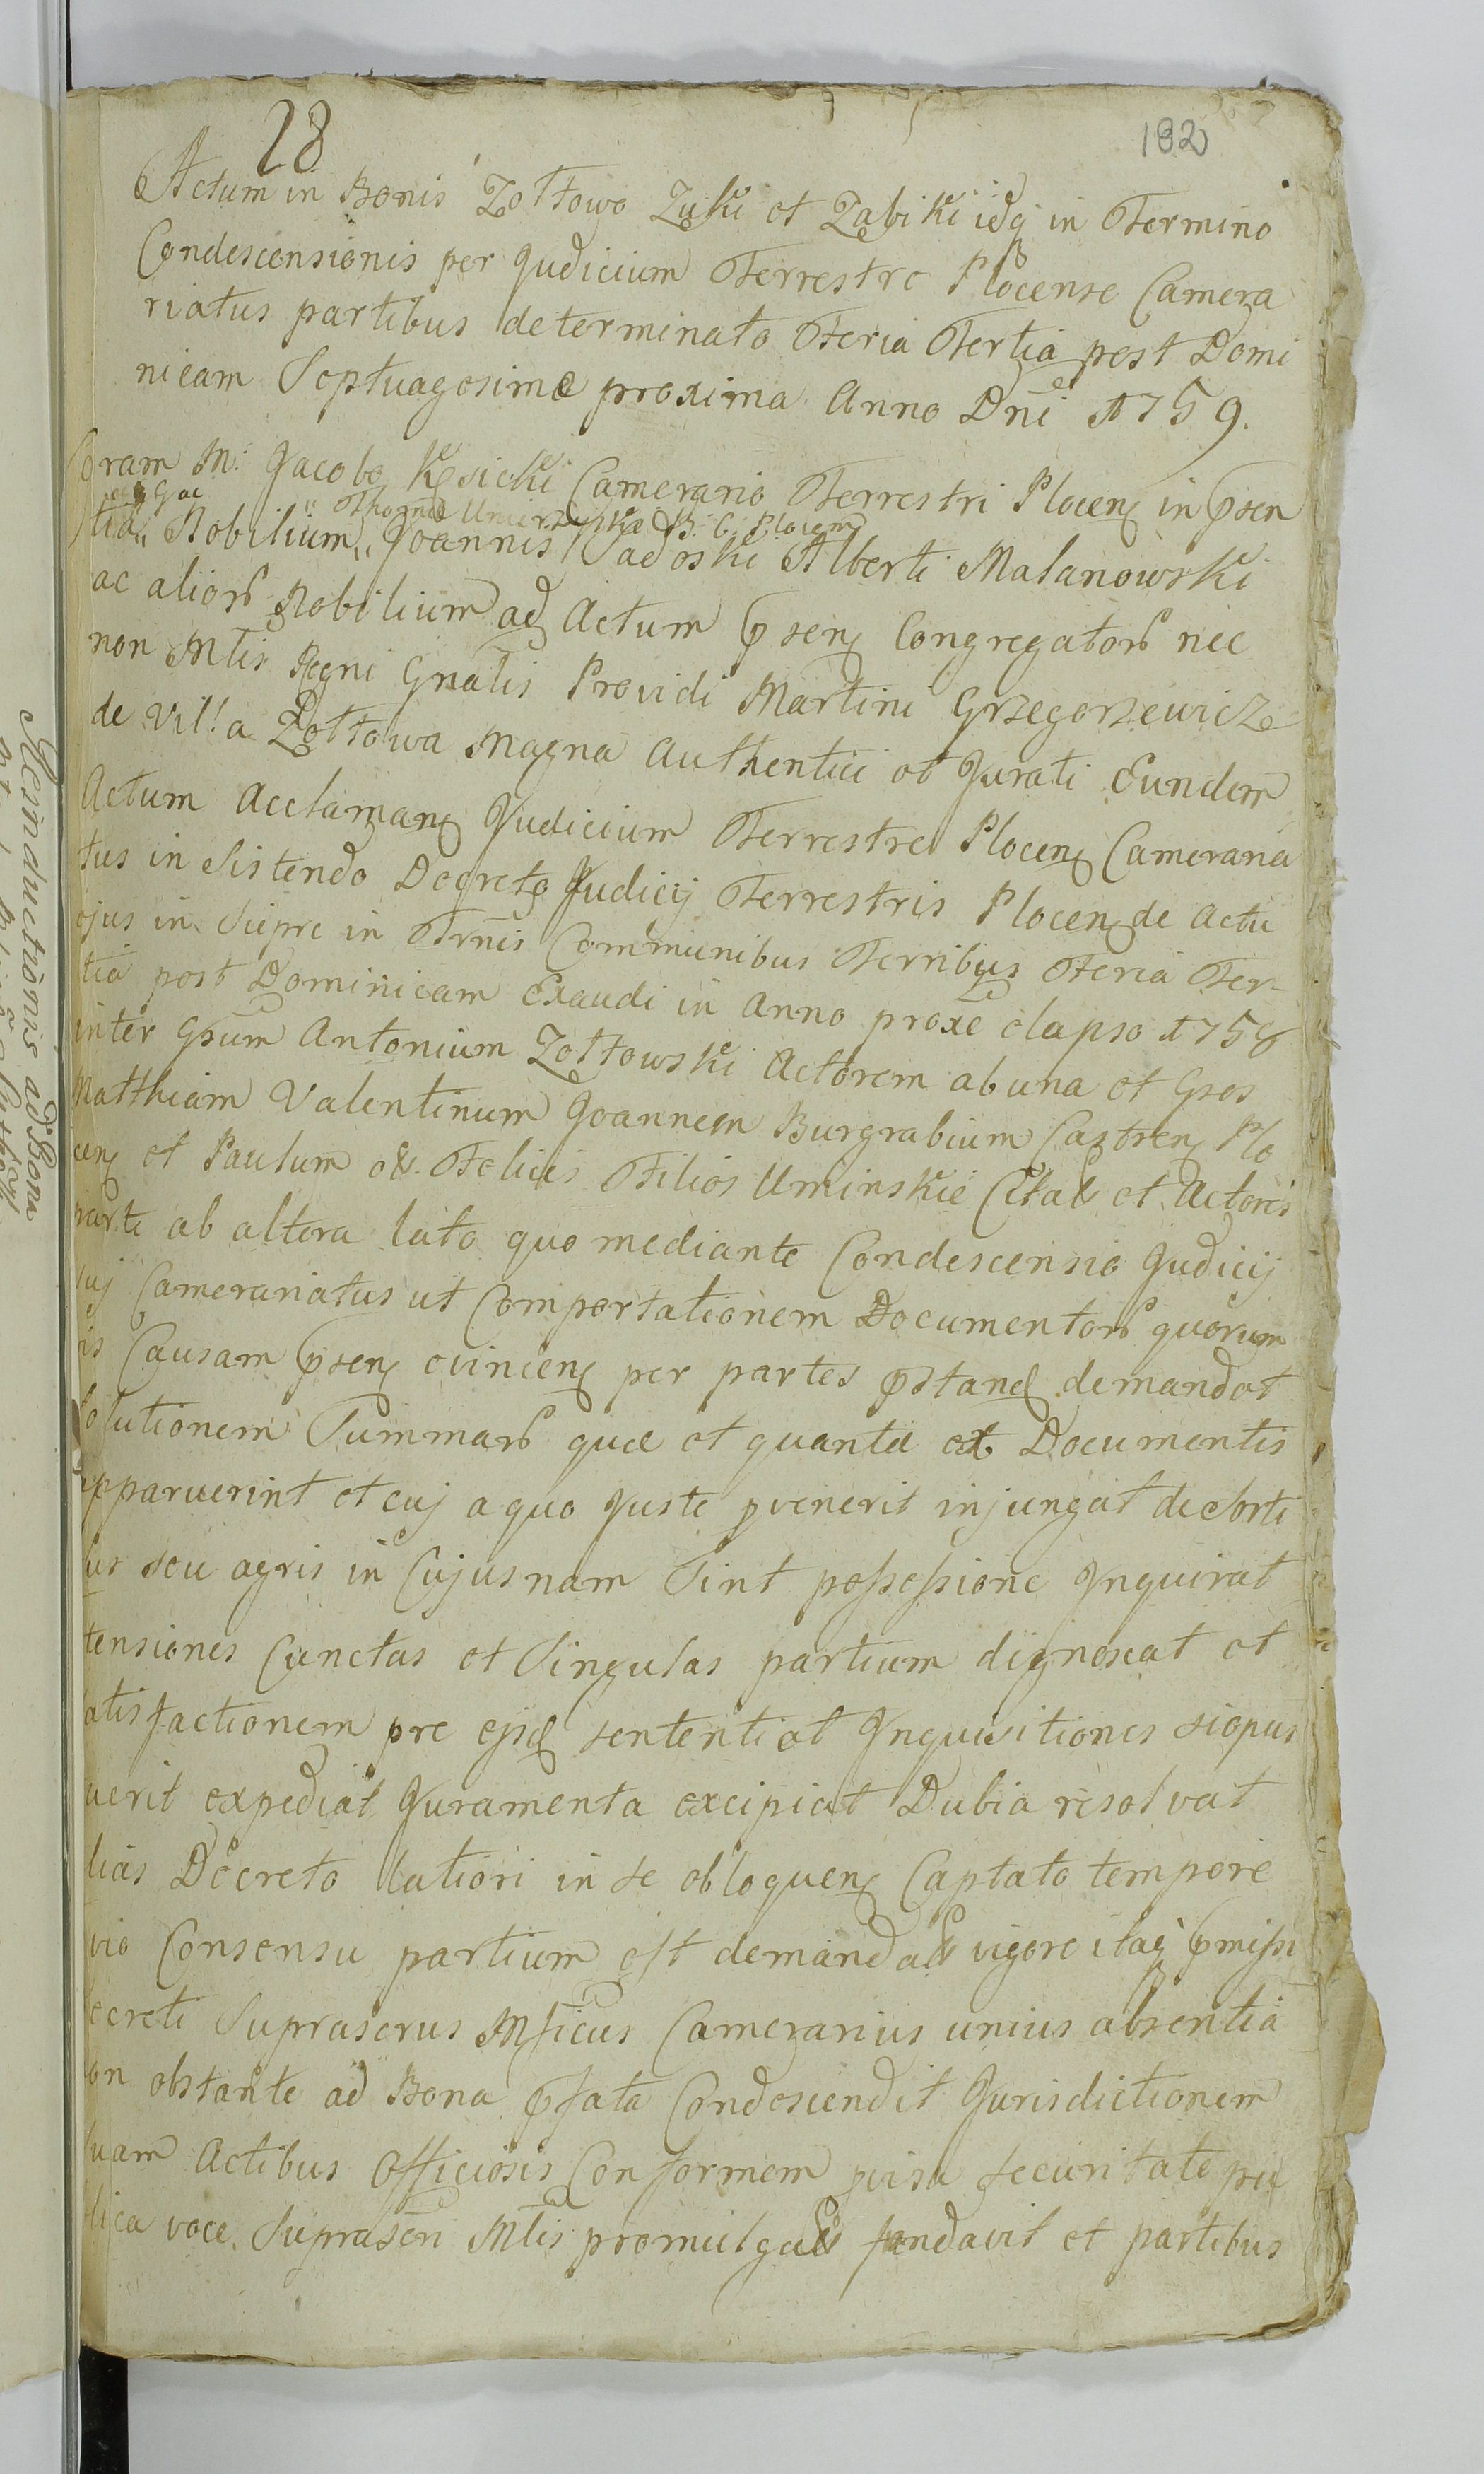 28
182
Actum in Bonis Zołtowo Zuki et Zabiki idq in Termino
Condescensionis per Judicium Terrestre Plocense Camera
riatus partibus determinato Feria Tertia post Domi
nicam Septuagesimæ proxima Anno Dni 1759.
Coram M. Jacobo Kęsicki Camerario Terrestri Plocen in psen
G ac Thoma B. C. Plocen
tia Nobilium Joannis Sadoski Alberti Malanowski
ac alior Nobilium ad Actum psen Congregator nec
non Mlis Regni Gnalis Providi Martini Grzegorzewicz
de villa Zołtowa Magna Authentici et Jurati Eundem
Actum Acclaman Judicium Terrestre Plocen Cameraria
tus in Sistendo Decreto Judicij Terrestris Plocen de Actu
ejus in Siepre in Trnis Communibus Terribus Feria Ter-
tia post Dominicam Exaudi in Anno proxe elapso 1758
inter Gsum Antonium Zołtowski Actorem ab una et Gsos
Matthiam Valentinum Joannem Burgrabium Castren Plo
cen et Paulum & Felicis Filios Uminskie Citat et Actores
parte ab altera lato quo mediante Condescensio Judicij
suj Camerariatus ut Comportationem Documentor quorum
is Causam psen evincen per partes pstand demandet
solutionem Summar quæ et quantæ ex Documentis
apparuerint et cuj a quo Juste pvenerit injungat de Sorti
bus seu agris in Cujusnam Sint possessione Inquirat
tensiones Cunctas et Singulas partium dignoscat et
atisfactionem pre ejsd sententiet Inquisitiones siopus
uerit expediat Juramenta excipiat Dubia resolvat
lias Decreto latiori in se obloquen Captato tempore
vio Consensu partium est demandat vigore itaq pmissi
ecreti Suprascrus Mficus Camerarius unius absentia
on obstante ad Bona pfata Condescendit Jurisdictionem
suam Actibus Officiosis Conformem pvisa securitate pu
lica voce Suprascri Mlis promulgat fundavit et partibus
Resinductionis ad Bona